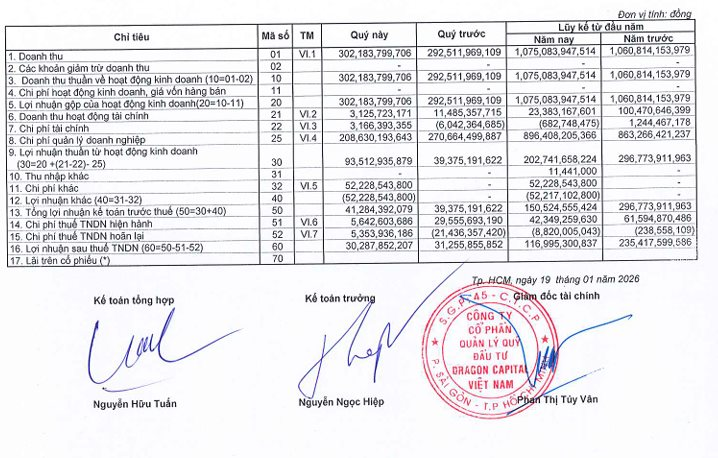 Đơn vị tính: đồng
Chỉ tiêu Mã số TM Quý này Quý trước Lũy kế từ đầu năm
Năm nay Năm trước
1. Doanh thu 01 VI.1 302,183,799,706 292,511,969,109 1,075,083,947,514 1,060,814,153,979
2. Các khoản giảm trừ doanh thu 02 - - - -
3. Doanh thu thuần về hoạt động kinh doanh (10=01-02) 10 302,183,799,706 292,511,969,109 1,075,083,947,514 1,060,814,153,979
4. Chi phí hoạt động kinh doanh, giá vốn hàng bán 11 - - - -
5. Lợi nhuận gộp của hoạt động kinh doanh(20=10-11) 20 302,183,799,706 292,511,969,109 1,075,083,947,514 1,060,814,153,979
6. Doanh thu hoạt động tài chính 21 VI.2 3,125,723,171 11,485,357,715 23,383,167,601 100,470,646,399
7. Chi phí tài chính 22 VI.3 3,166,393,355 (6,042,364,685) (682,748,475) 1,244,467,178
8. Chi phí quản lý doanh nghiệp 25 VI.4 208,630,193,643 270,664,499,887 896,408,205,366 863,266,421,237
9. Lợi nhuận thuần từ hoạt động kinh doanh
(30=20 +(21-22)- 25) 30 93,512,935,879 39,375,191,622 202,741,658,224 296,773,911,963
10. Thu nhập khác 31 - - 11,441,000 -
11. Chi phí khác 32 VI.5 52,228,543,800 - 52,228,543,800 -
12. Lợi nhuận khác (40=31-32) 40 (52,228,543,800) - (52,217,102,800) -
13. Tổng lợi nhuận kế toán trước thuế (50=30+40) 50 41,284,392,079 39,375,191,622 150,524,555,424 296,773,911,963
14. Chi phí thuế TNDN hiện hành 51 VI.6 5,642,603,686 29,555,693,190 42,349,259,630 61,594,870,486
15. Chi phí thuế TNDN hoãn lại 52 VI.7 5,353,936,186 (21,436,357,420) (8,820,005,043) (238,558,109)
16. Lợi nhuận sau thuế TNDN (60=50-51-52) 60 30,287,852,207 31,255,855,852 116,995,300,837 235,417,599,586
17. Lãi trên cổ phiếu (*) 70
Tp. HCM, ngày 19 tháng 01 năm 2026
Kế toán tổng hợp Kế toán trưởng Giám đốc tài chính
CÔNG TY
CỔ PHẦN
QUẢN LÝ QUỸ
ĐẦU TƯ
DRAGON CAPITAL
VIỆT NAM
Nguyễn Hữu Tuấn Nguyễn Ngọc Hiệp Phạn Thị Túy Vân